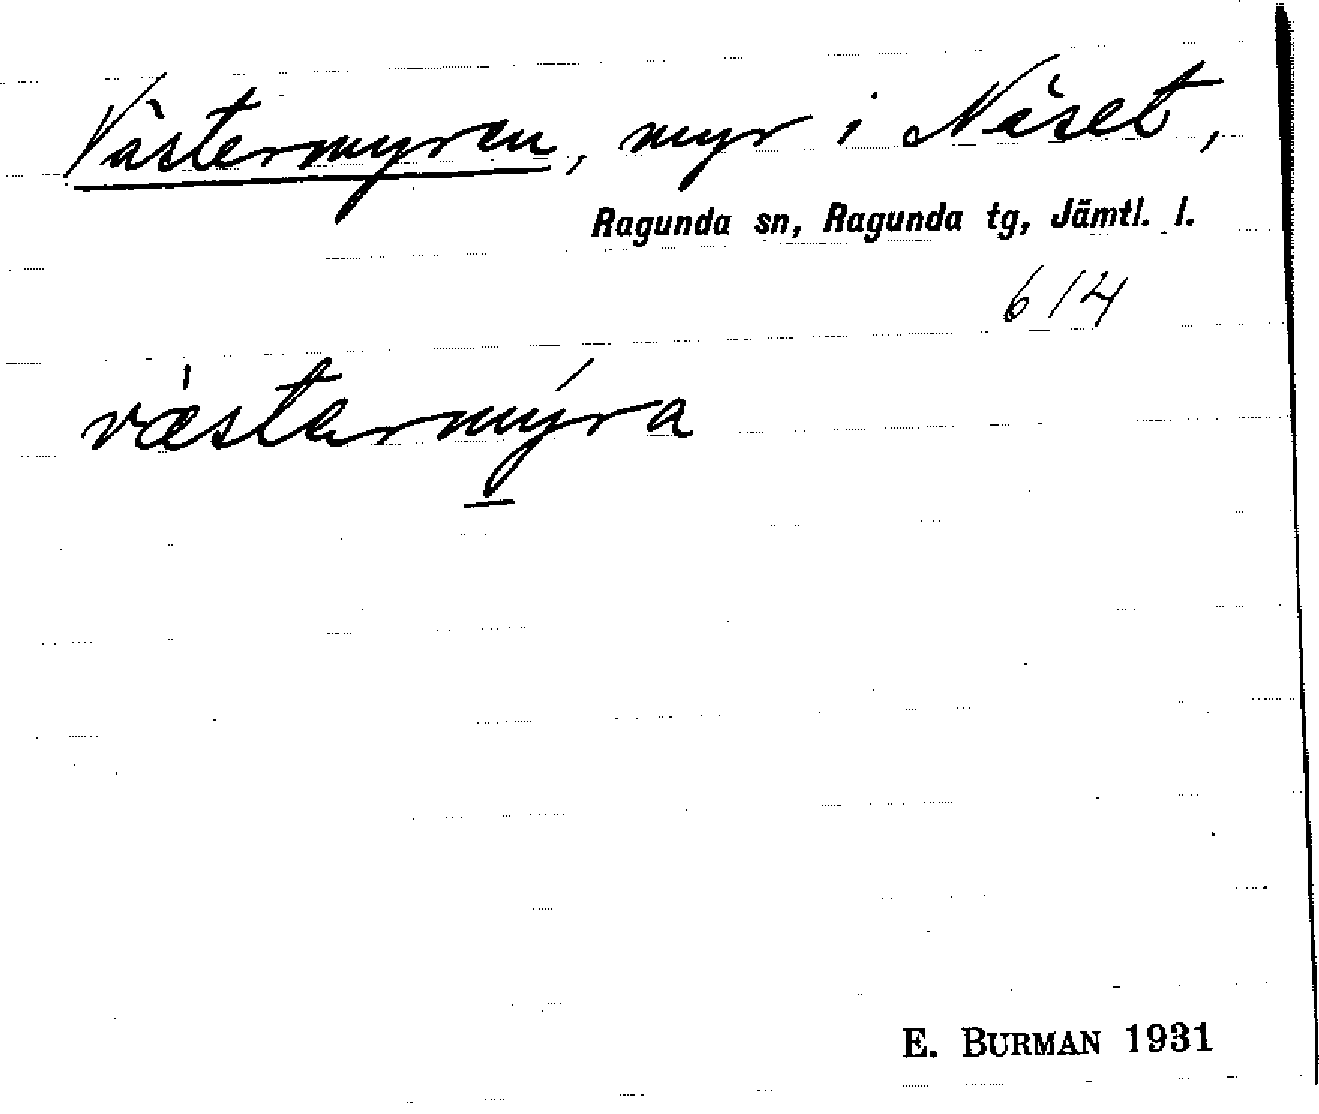 Västermyren, myr i Näset,
Ragunda sn, Ragunda tg, Jämtl. l.
614
væ̀starmýra
E. BURMAN 1931